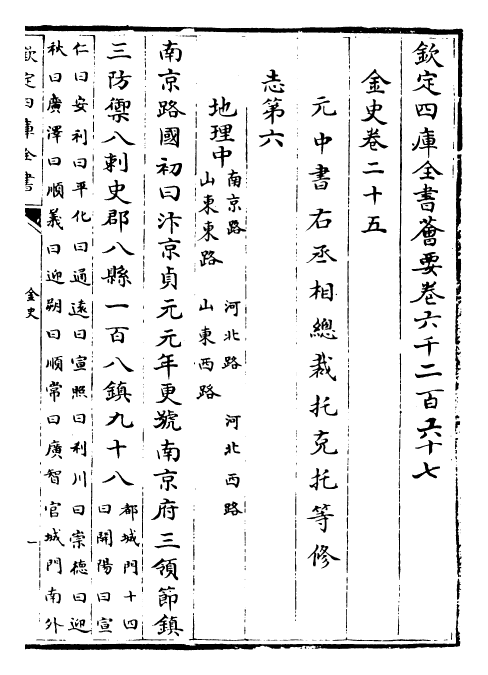 欽定四庫全書薈要卷六千二百六十七
金史卷二十五
元中書右丞相總裁托克托等修
志第六
地理中
南京路 河北路 河北西路
山東東路 山東西路
南京路國初曰汴京貞元元年更號南京府三領節鎮
三防禦八刺史郡八縣一百八鎮九十八
都城門十四
曰開陽曰宣
仁曰安利曰平化曰通遠曰宣照曰利川曰崇德曰迎
秋曰廣澤曰順義曰迎朔曰順常曰廣智官城門南外
欽定四庫全書
金史
一